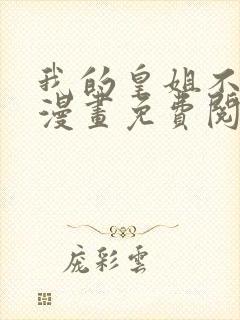 我的皇姐不
漫畫免費閱
庞彩雲